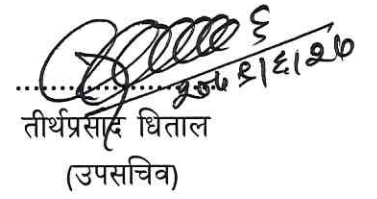 २०७९।६।२७
तीर्थप्रसाद धिताल
(उपसचिव)